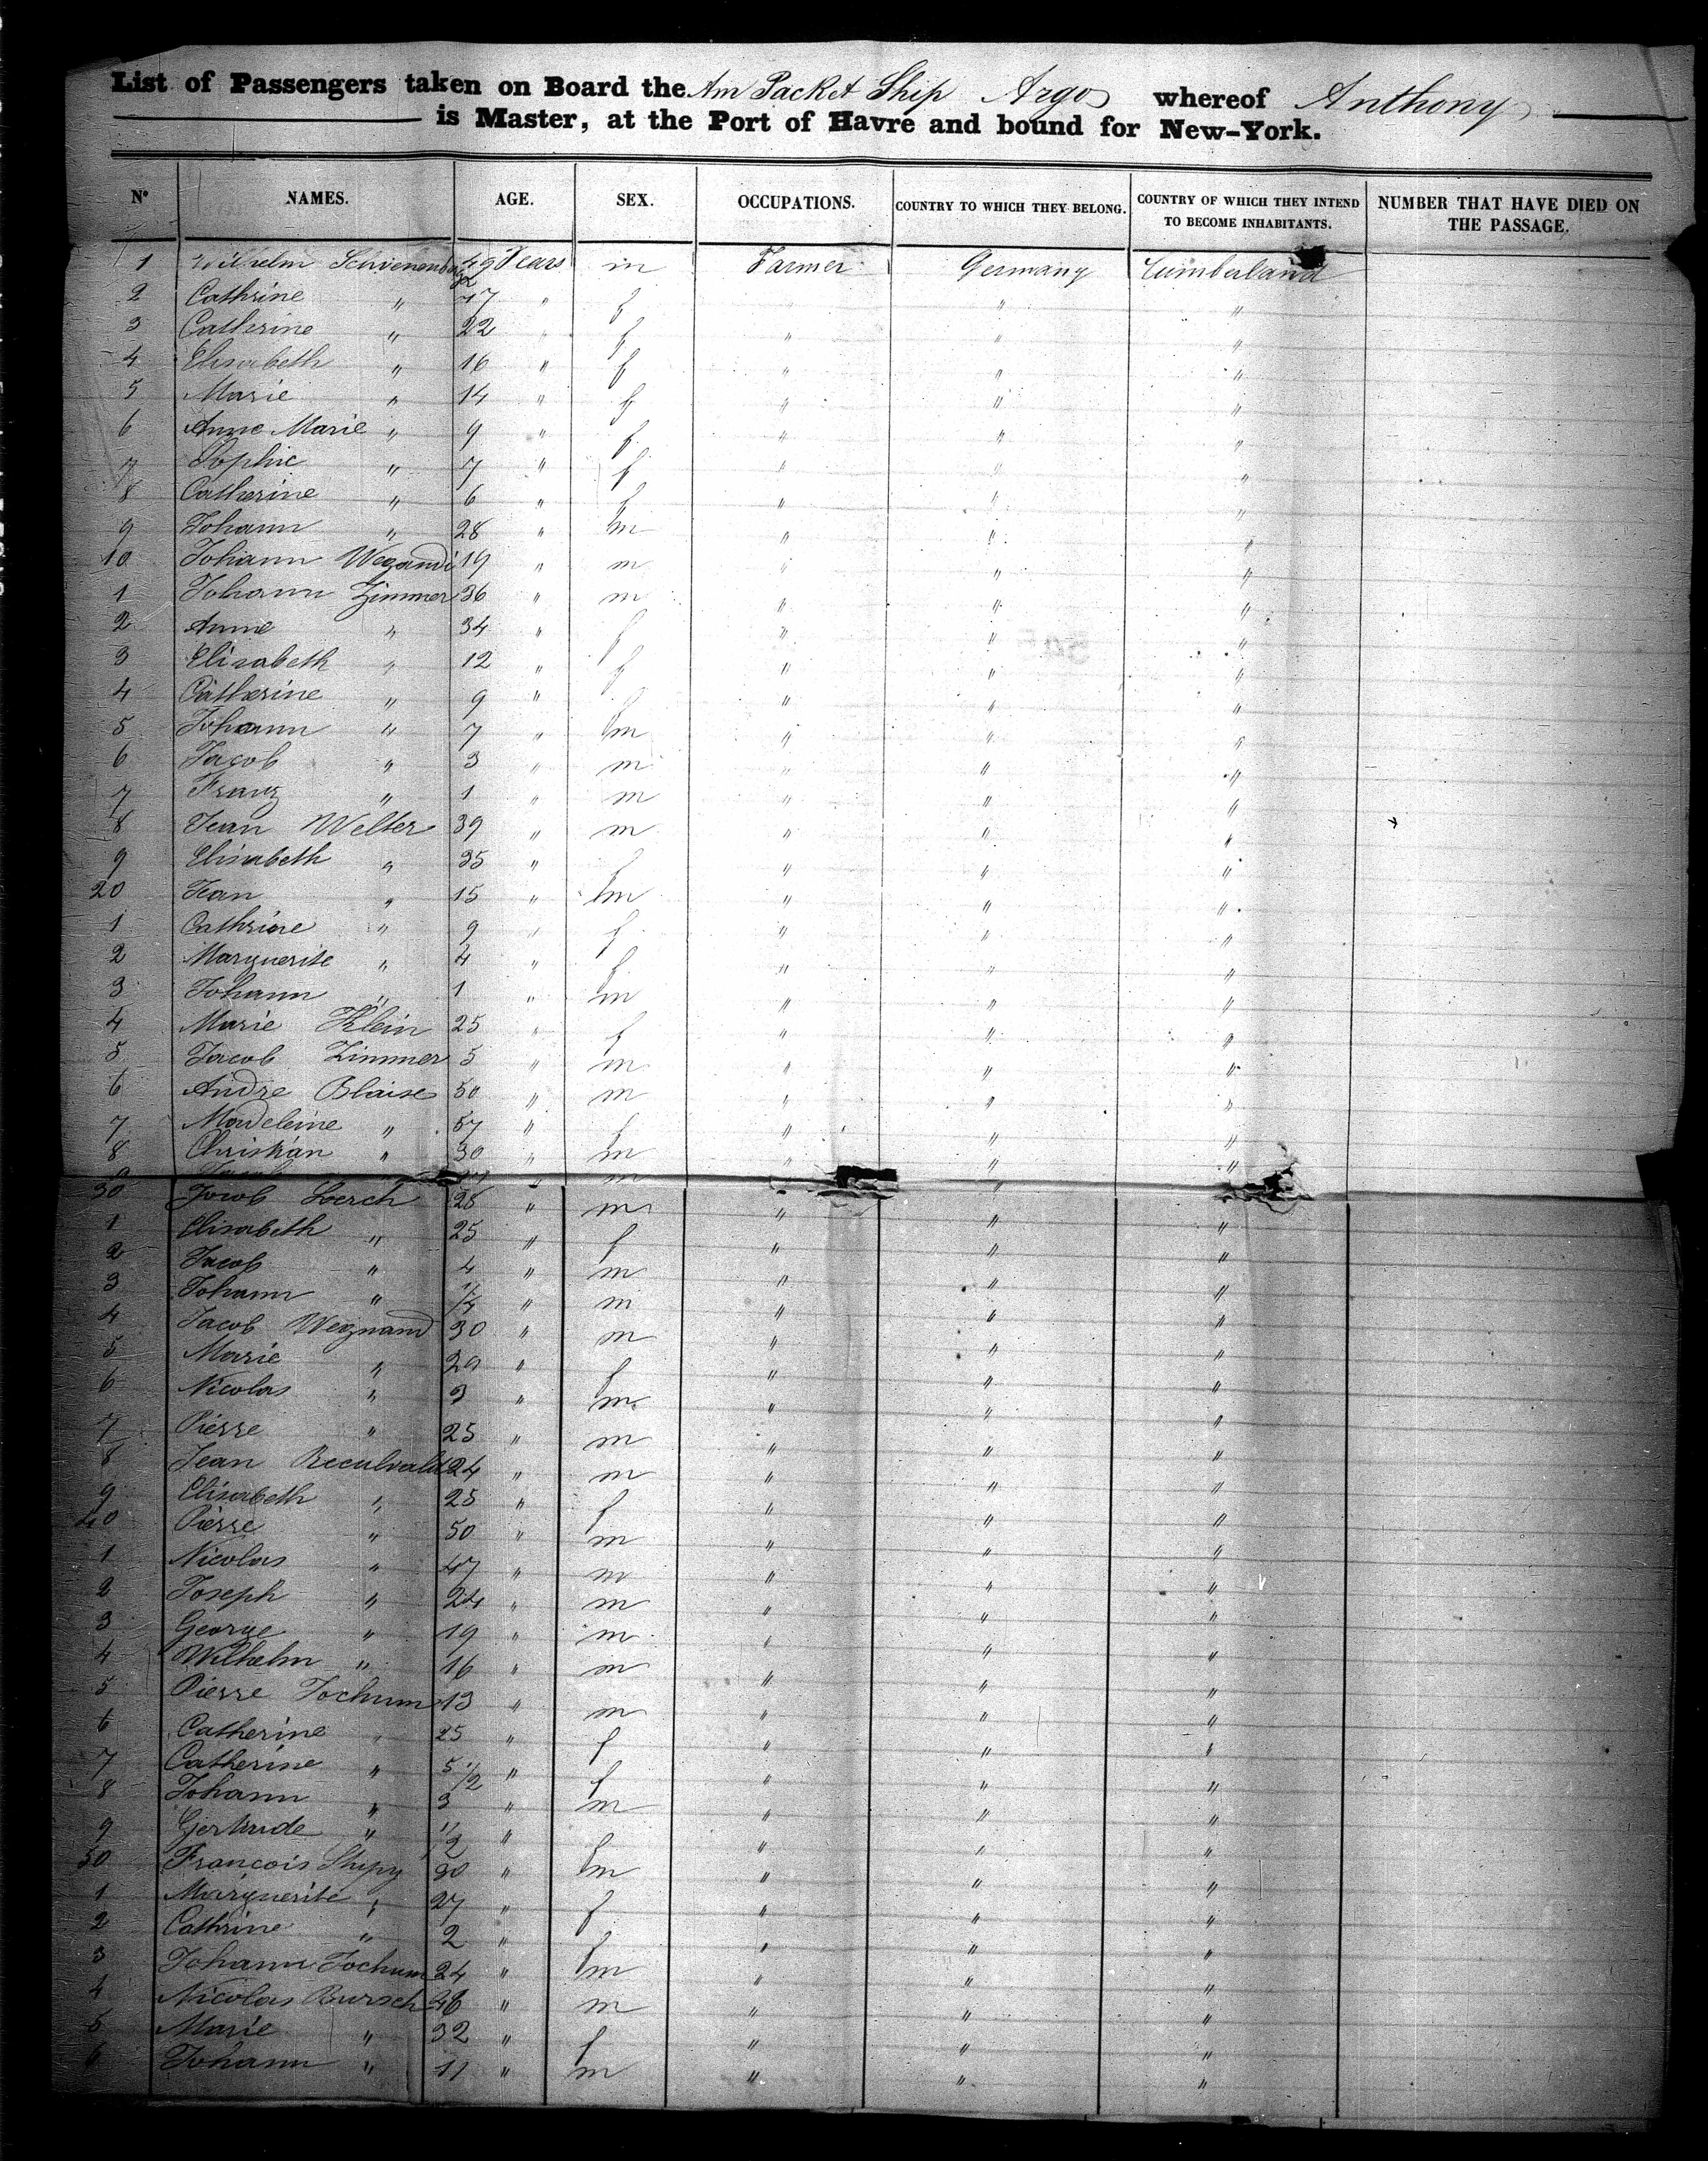 List of Passengers taken on Board the Am Packet Ship Argo whereof Anthony
is Master, at the Port of Havre and bound for New-York.
N° NAMES. AGE. SEX. OCCUPATIONS. COUNTRY TO WHICH THEY BELONG. COUNTRY OF WHICH THEY INTEND TO BECOME INHABITANTS. NUMBER THAT HAVE DIED ON THE PASSAGE.
1 Wilhelm 49 Years m Farmer Germany Cumberland
2 Cathrine " 47 " f " "
3 Catherine " 22 " f " " "
4 Elisabeth " 16 " f " " "
5 Marie " 14 " f " " "
6 Anne Marie " 9 " f " " "
7 Sophie " 7 " f " " "
8 Catherine " 6 " f " " "
9 Johann " 28 " m " " "
10 Johann Wegandi 19 " m " " "
1 Johann Zimmer 36 " m " " "
2 Anne " 34 " f " " "
3 Elisabeth " 12 " f " " "
4 Catherine " 9 " f " " "
5 Johann " 7 " m " " "
6 Jacob " 3 " m " " "
7 Franz " 1 " m " " "
8 Jean Welter 39 " m " " "
9 Elisabeth " 35 " f " " "
20 Jean " 15 " m " " "
1 Cathrine " 9 " f " " "
2 Marguerite " 4 " f " " "
3 Johann " 1 " m " " "
4 Marie Klein 25 " f " " "
5 Jacob Zimmer 5 " m " " "
6 Andre Blaise 50 " m " " "
7 Madeleine " 57 " f " " "
8 Christian " 30 " m " " "
9 " m " "
30 Jacob Lerch 28 " m " " "
1 Elisabeth " 25 " f " " "
2 Jacob " 4 " m " " "
3 Johann " " m " " "
4 Jacob Wegnand 30 " m " " "
5 Marie " 29 " f " " "
6 Nicolas " 3 " m " " "
7 Pierre " 25 " m " " "
8 Jean 24 " m " " "
9 Elisabeth " 25 " f " " "
40 Pierre " 50 " m " " "
1 Nicolas " 47 " m " " "
2 Joseph " 24 " m " " "
3 George " 19 " m " " "
4 Wilhelm " 16 " m " " "
5 Pierre Jochum 13 " m " " "
6 Catherine " 25 " f " " "
7 Catherine " 5 1/2 " f " " "
8 Johann " 3 " m " " "
9 Gertrude " 1/2 " f " " "
50 François 30 " m " " "
1 Marguerite " 27 " f " " "
2 Cathrine " 2 " f " " "
3 Johann Jochum 24 " m " " "
4 Nicolas Bursch " m " " "
5 Marie " 32 " f " " "
6 Johann " 11 " m " " "